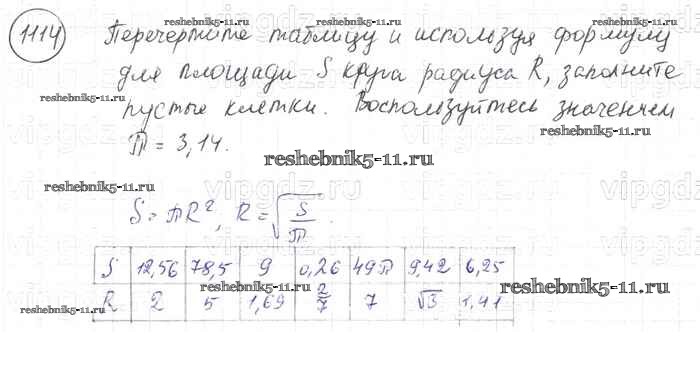 reshebnik5-11.ru
1114 Перечертите таблицу и используя формулу
для площади S круга радиуса R, заполните
reshebnik5-11.ru
пустые клетки. Воспользуйтесь значением
reshebnik5-11.ru
π = 3,14.
reshebnik5-11.ru
vipgdz.ru
reshebnik5-11.ru
S = πR², R = √S/π.
reshebnik5-11.ru
S 12,56 78,5 9 0,26 49π 9,42 6,25
R 2 5 1,69 2/7 7 √3 1,41
reshebnik5-11.ru
reshebnik5-11.ru